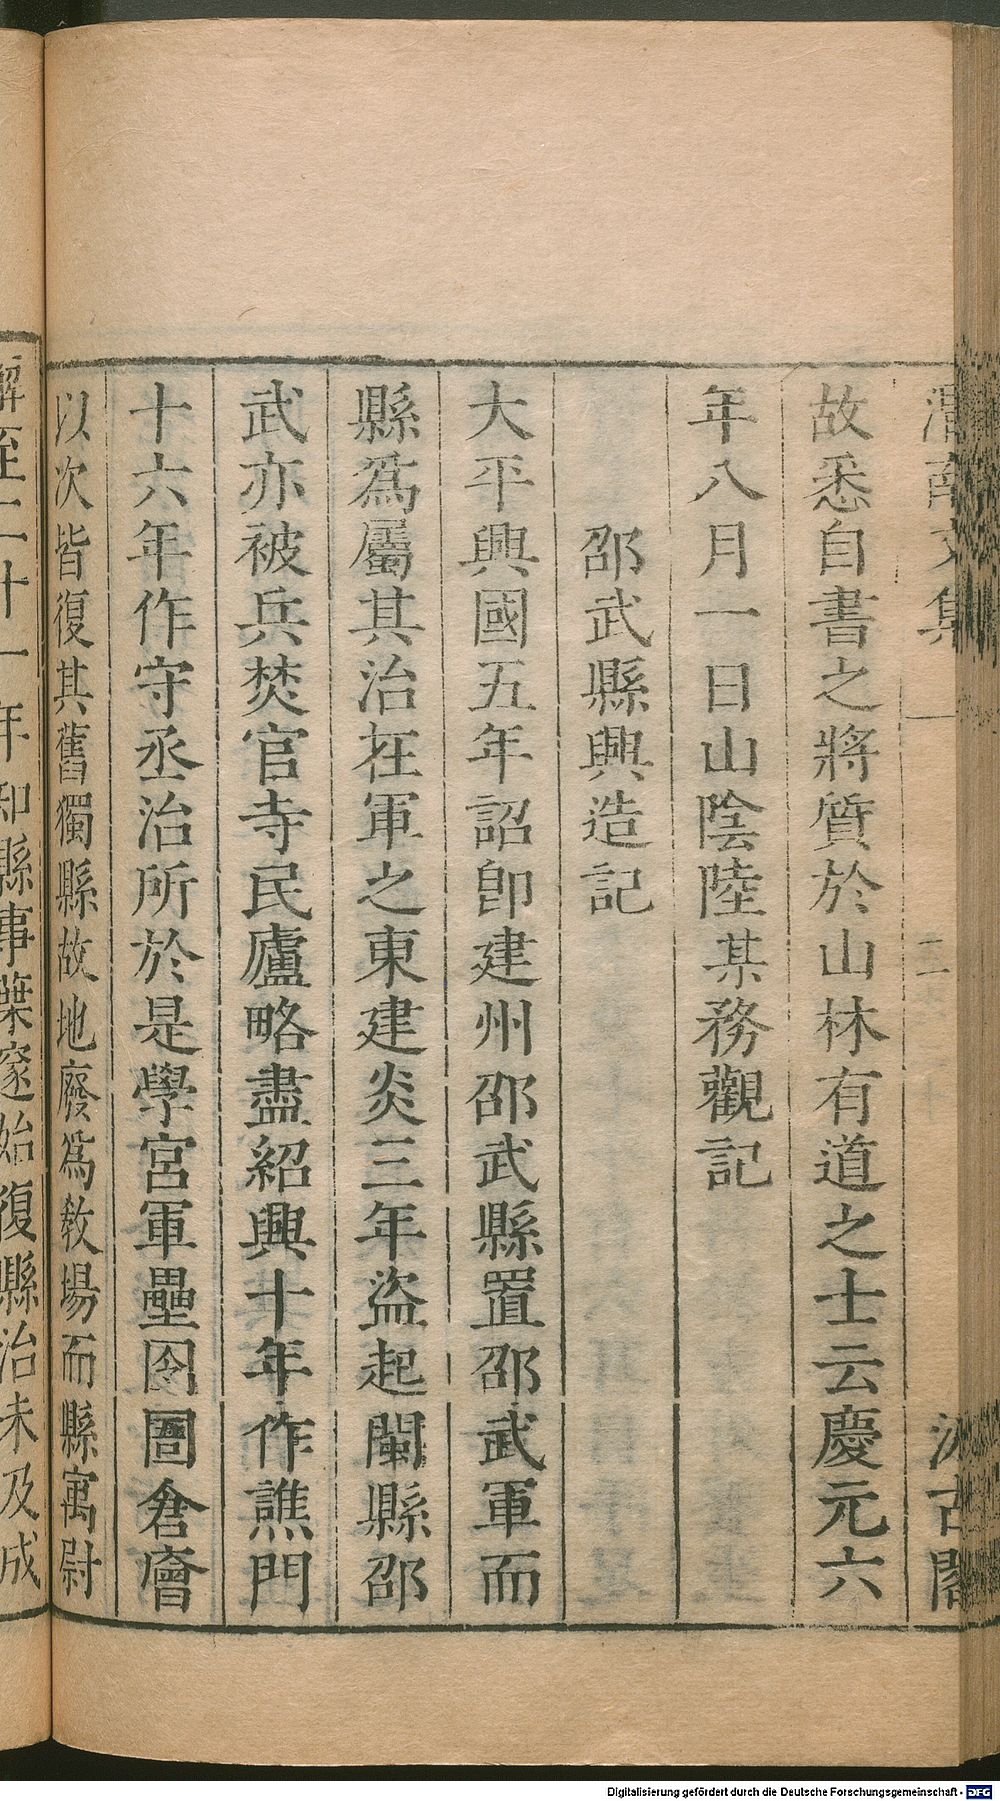 渭南文集
二
汲古閣
故悉自書之將質於山林有道之士云慶元六
年八月一日山陰陸某務觀記
邵武縣興造記
大平興國五年詔卽建州邵武縣置邵武軍而
縣爲屬其治在軍之東建炎三年盜起閩縣邵
武亦被兵焚官寺民廬略盡紹興十年作譙門
十六年作守丞治所於是學宮軍壘囹圄倉廥
以次皆復其舊獨縣故地廢爲教場而縣寓尉
廨至二十一年知縣事葉寔始復縣治未及成
Digitalisierung gefördert durch die Deutsche Forschungsgemeinschaft - DFG